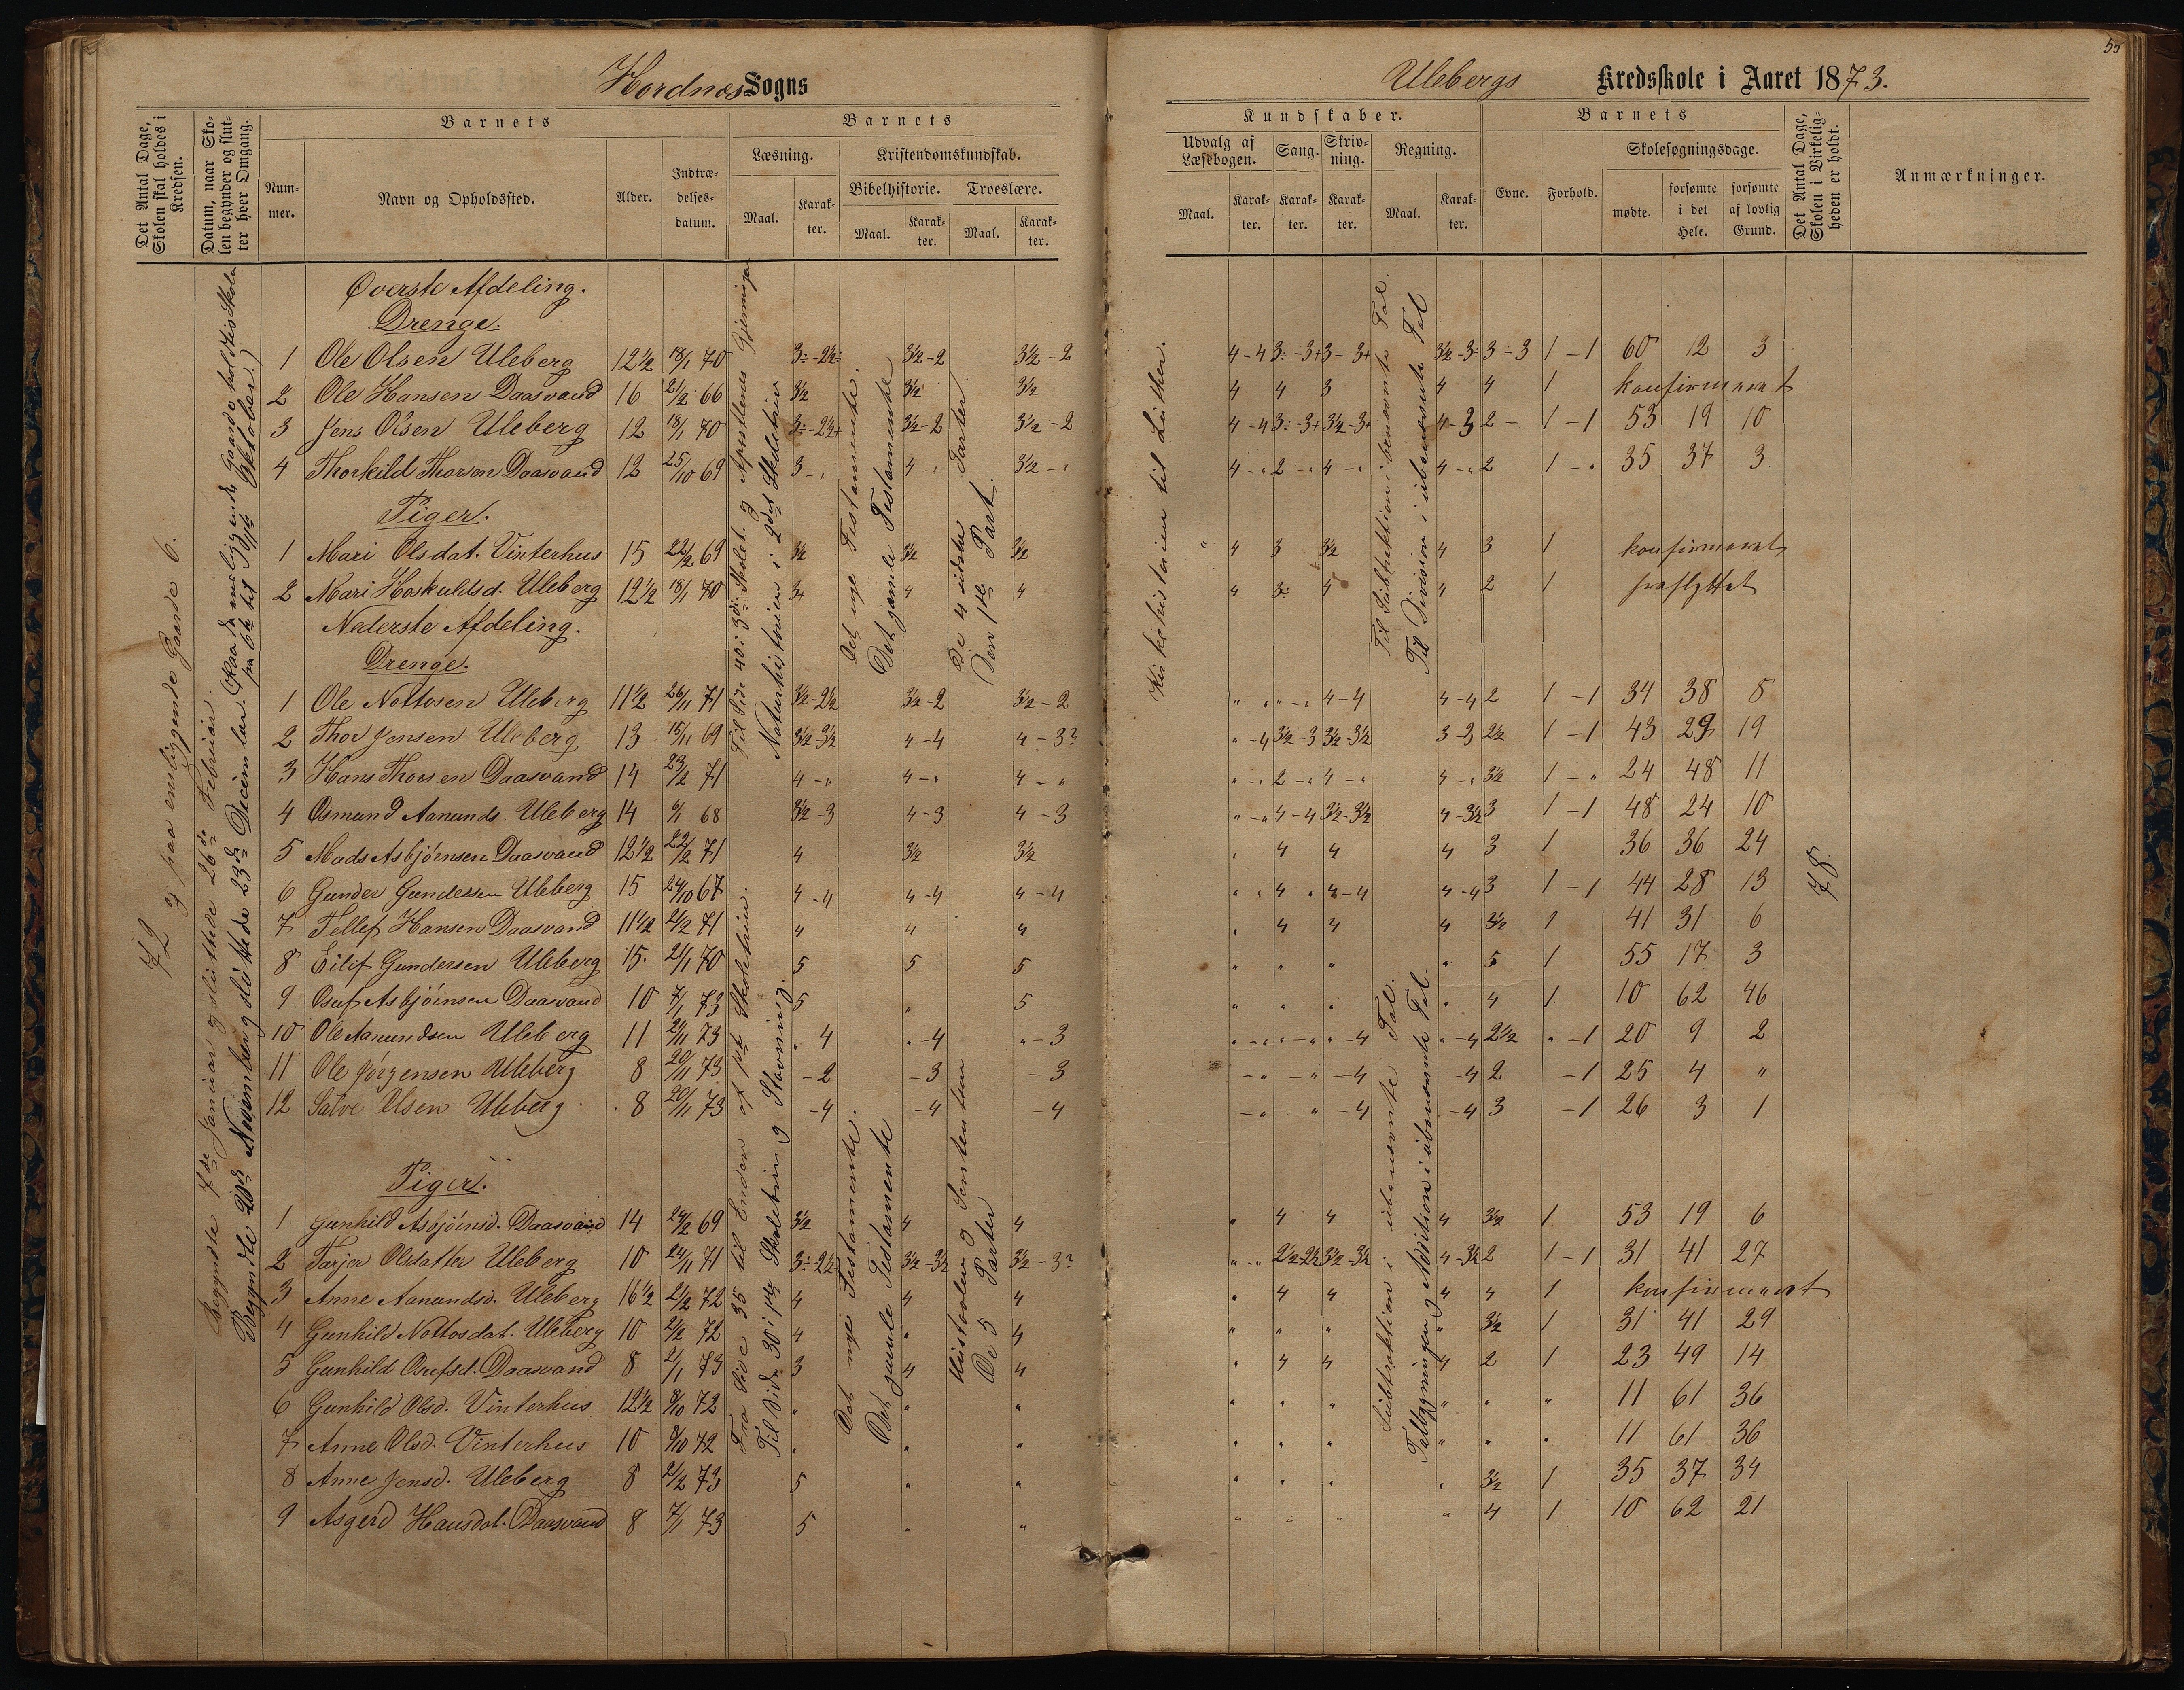 55
Hordnæs Sogns
Ulebergs Kredsskole i Aaret 1873.
Det Antal Dage, Skolen skal holdes i Kredsen.
Datum, naar Skolen begynder og slutter hver Omgang.
Barnets
Nummer.
Navn og Opholdssted.
Alder.
Indtrædelsesdatum.
Barnets
Læsning.
Maal.
Karakter.
Kristendomskundskab.
Bibelhistorie.
Maal.
Karakter.
Troeslære.
Maal.
Karakter.
Kundskaber.
Udvalg af Læsebogen.
Maal.
Karakter.
Sang.
Karakter.
Skrivning.
Karakter.
Regning.
Maal.
Karakter.
Barnets
Evne.
Forhold.
Skolesøgningsdage.
mødte.
forsømte i det Hele.
forsømte af lovlig Grund.
Det Antal Dage, Skolen i Virkeligheden er holdt.
Anmærkninger.
72 og paa ensliggende Gaarde 6.
Begyndte 7de Januar og sluttede 26de Februar.
Begyndte 20de November og sluttede 23de December. (Paa de ensliggende Gaarde holdtes Skole fra 6te til Oktober)
Til Side 40 i 3die Skolet. og Apostlenes Gjerninger
Naturhistorien i 2det Skoletrin
Det nye Testamente.
Det gamle Testamente
De 4 sidste Parter
Den 1ste Part.
Kirkehistorien til Luther.
Til Subtraktion i benævnte Tal.
Til Division i ubenævnte Tal
Øverste Afdeling.
Drenge.
1 Ole Olsen Uleberg 12½ 18/1 70 3÷-2½÷ 3½-2 3½-2 4-4 3÷-3+ 3-3+ 3½-3÷ 3÷3 1-1 60 12 3
2 Ole Hansen Daasvand 16 21/2 66 3½ 3½ 3½ 4 4 3 4 4 1 konfirmeret
3 Jens Olsen Uleberg 12 18/1 70 3÷-2½+ 3½-2 3½-2 4-4 3÷-3+ 3½-3+ 4-3 2- 1-1 53 19 10
4 Thorkild Thorsen Daasvand 12 25/10 69 3-" 4-" 3½-" 4-" 2-" 4-" 4-" 2 1-" 35 37 3
Piger.
1 Mari Olsdat. Vinterhus 15 22/2 69 3½ 3½ 3½ " 4 3 3½ 4 3 1 konfirmeret
2 Mari Hoskuldsd. Uleberg 12½ 18/1 70 3+ 4 4 4 3÷ 4 4 2 1 fraflyttet
Nederste Afdeling.
Drenge.
1 Ole Nottosen Uleberg 11½ 26/11 71 3½-2½ 3½-2 3½-2 "-" "-" 4-4 4-4 2 1-1 34 38 8
2 Thor Jensen Uleberg 13 15/11 69 3½-3½ 4-4 4-3? "-4 3½-3 3½-3½ 3-3 2½ 1-1 43 29 19
3 Hans Thorsen Daasvand 14 23/2 71 4-" 4-" 4-" "-" 2-" 4-" 4-" 3½ 1-" 24 48 11
4 Osmund Aanunds. Uleberg 14 9/1 68 3½-3 4-3 4-3 "-" 4-4 3½-3½ 4-3½ 3 1-1 48 24 10
5 Mads Asbjørnsen Daasvand 12½ 22/2 71 4 3½ 3½ " 4 4 4 3 1 36 36 24
6 Gunder Gundersen Uleberg 15 24/10 67 4-4 4-4 4-4 " " 4 " 4-4 4-4 3 1-1 44 28 13
7 Tellef Hansen Daasvand 11½ 21/2 71 4 4 4 " 4 4 4 3½ 1 41 31 6
8 Eilif Gundersen Uleberg 15 21/1 70 5 5 5 " " " " 5 1 55 17 3
9 Osuf Asbjørnsen Daasvand 10 7/1 73 5 " 5 " " " " 4 1 10 62 46
10 Ole Aanundsen Uleberg 11 21/11 73 " 4 "-4 "-3 "-" "-" "-4 "-4 2½ "-1 20 9 2
11 Ole Jørgensen Uleberg 8 20/11 73 -2 -3 -3 -" -" -4 -4 2 -1 25 4 "
12 Salve Olsen Uleberg 8 20/11 73 -4 -4 -4 -" " -4 -4 3 -1 26 3 1
78
Fra Side 35 til Enden af 1ste Skoletrin.
Til Side 30 i 1ste Skoletrin og Stavning
Det nye Testamente.
Det gamle Testamente
Historien og
De 5 Parter
Subtraktion i ubenævnte Tal.
Tallægningen og Addition i ubenævnte Tal.
Piger.
1 Gunhild Asbjørnsd. Daasvand 14 24/2 69 3½ 4 4 " 4 4 4 3½ 1 53 19 6
2 Tarjer Olsdatter Uleberg 10 24/11 71 3÷-2½ 3½-3½ 3½-3? " " 2½-2½ 3½-3½ 4-3½ 2 1-1 31 41 27
3 Anne Aanundsd. Uleberg 16½ 21/2 72 4 4 4 " 4 4 4 4 1 konfirmeret
4 Gunhild Nottosdat. Uleberg 10 21/2 72 4 " 4 " " " " 3½ 1 31 41 29
5 Gunhild Osufsd. Daasvand 8 2/1 73 3 4 4 " 4 4 4 2 1 23 49 14
6 Gunhild Olsd. Vinterhus 12½ 8/10 72 " " " " " " " " " 11 61 36
7 Anne Olsd. Vinterhus 10 8/10 72 " " " " " " " " " 11 61 36
8 Anne Jensd. Uleberg 8 2/2 73 5 " " " " " " 3½ 1 35 37 34
9 Asgerd Hansdat. Daasvand 8 7/1 73 5 " " " " " " 4 1 10 62 21